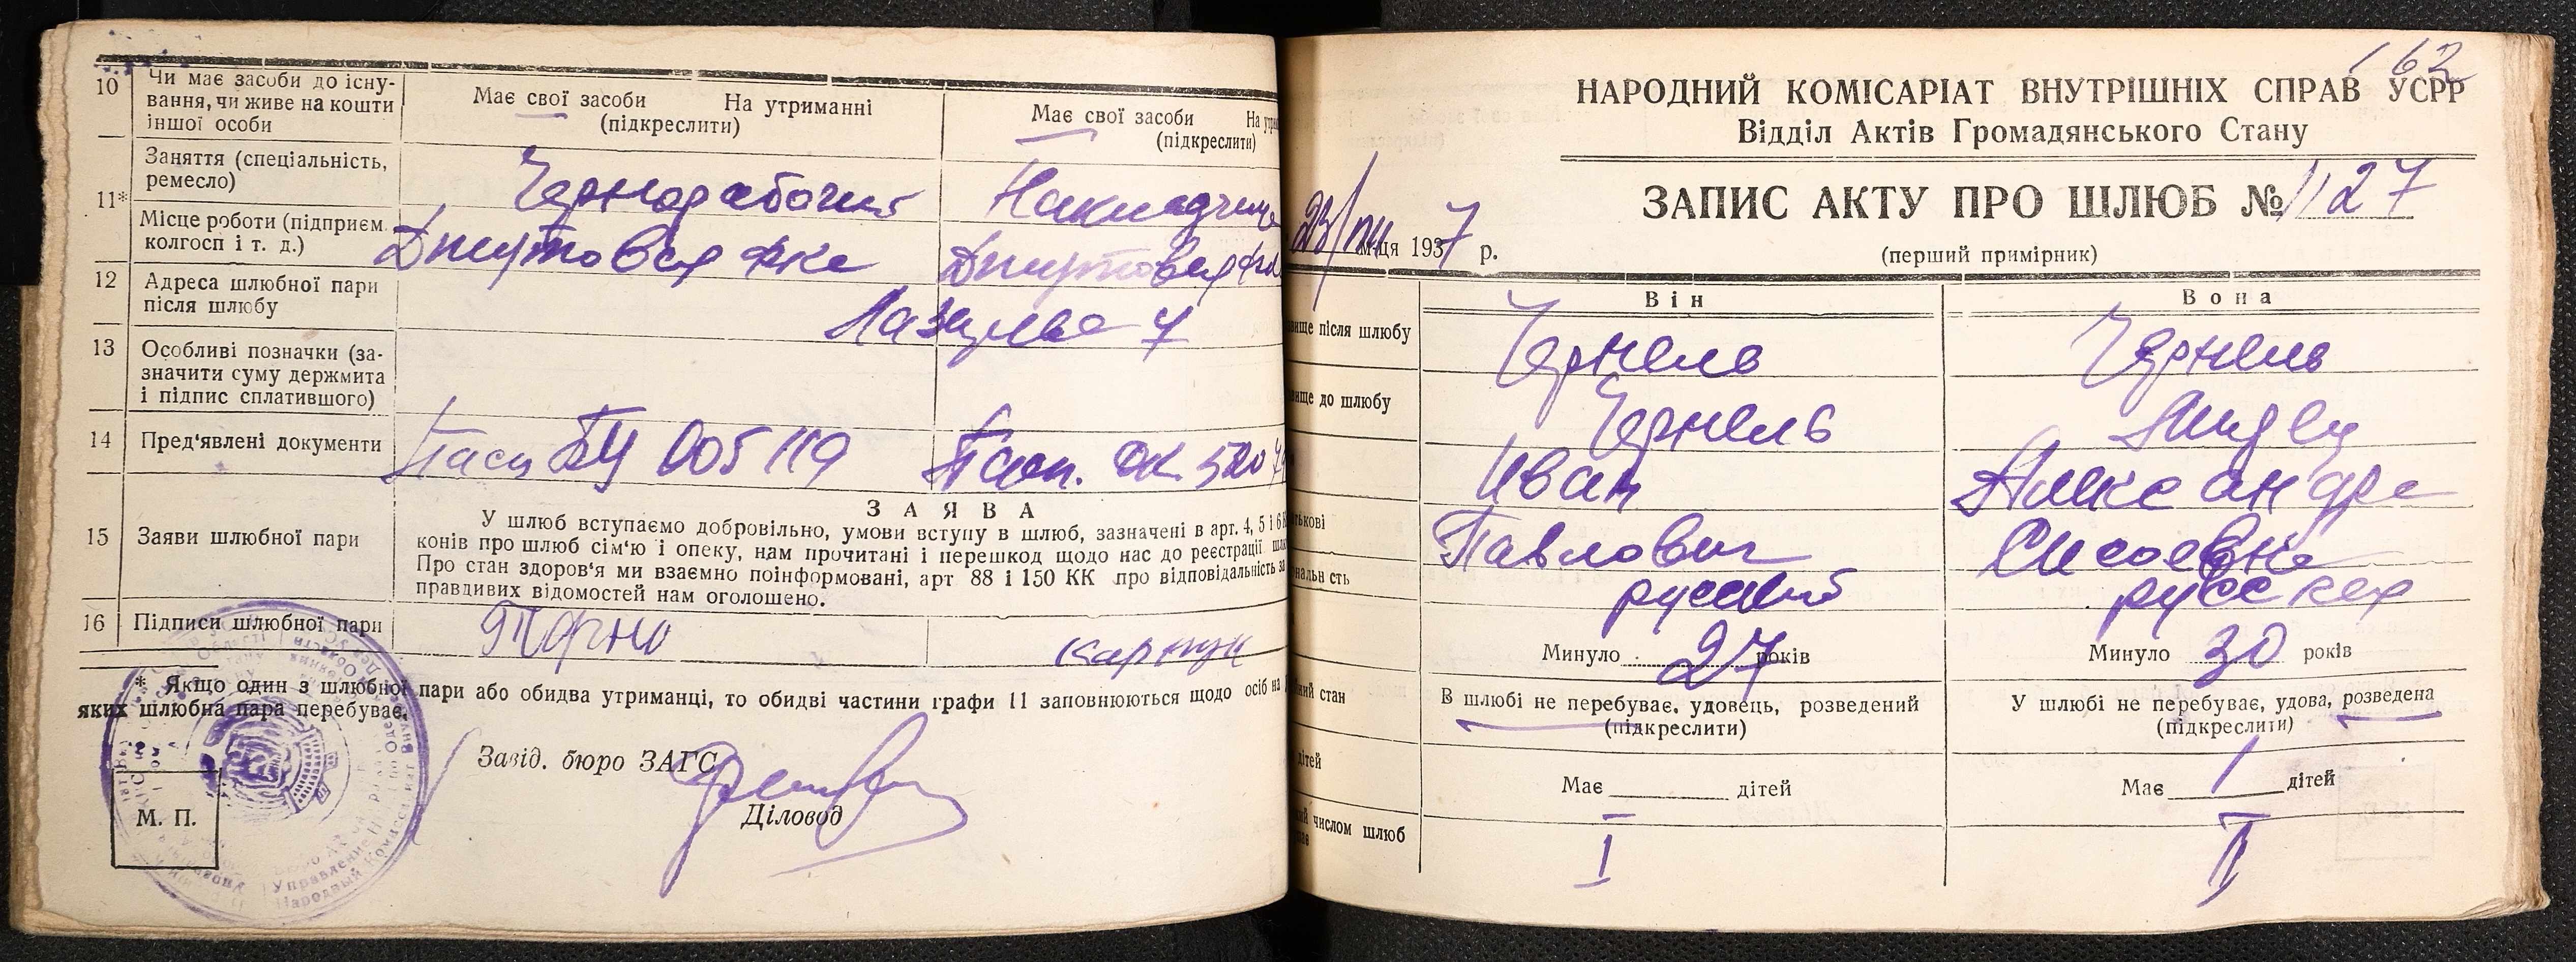 10 Чи має засоби до існу-
вання, чи живе на кошти
іншої особи
Має свої засоби На утриманні
(підкреслити)
Має свої засоби
(підкреслити)
11* Заняття (спеціальність,
ремесло)
Чернорабочий
Місце роботи (підприєм.
колгосп і т. д.)
Джутовая ф-ка
Джутовая
12 Адреса шлюбної пари
після шлюбу
13 Особливі позначки (за-
значити суму держмита
і підпис сплатившого)
14 Пред'явлені документи
Пасп БЧ 005119
Пасп. ОК 520
15 Заяви шлюбної пари
ЗАЯВА
У шлюб вступаємо добровільно, умови вступу в шлюб, зазначені в арт. 4, 5 і 6
конів про шлюб сім'ю і опеку, нам прочитані і перешкод щодо нас до реєстрації
Про стан здоров'я ми взаємно поінформовані, арт 88 і 150 КК про відповідальність за
правдивих відомостей нам оголошено.
16 Підписи шлюбної пари
* Якщо один з шлюбної пари або обидва утриманці, то обидві частини графи 11 заповнюються щодо осіб на
яких шлюбна пара перебуває.
Завід. бюро ЗАГС
Діловод
М. П.
162
НАРОДНИЙ КОМІСАРІАТ ВНУТРІШНІХ СПРАВ УСРР
Відділ Актів Громадянського Стану
ЗАПИС АКТУ ПРО ШЛЮБ № 1127
(перший примірник)
23/ м-ця 1937 р.
Він
Вона
після шлюбу
Чернель
Чернель
до шлюбу
Чернель
Иван
Александра
Павлович
Сисоевна
русский
русская
Минуло 27 років
Минуло 30 років
стан
В шлюбі не перебуває, удовець, розведений
(підкреслити)
У шлюбі не перебуває, удова, розведена
(підкреслити)
дітей
Має дітей
Має 1 дітей
числом шлюб
I
II